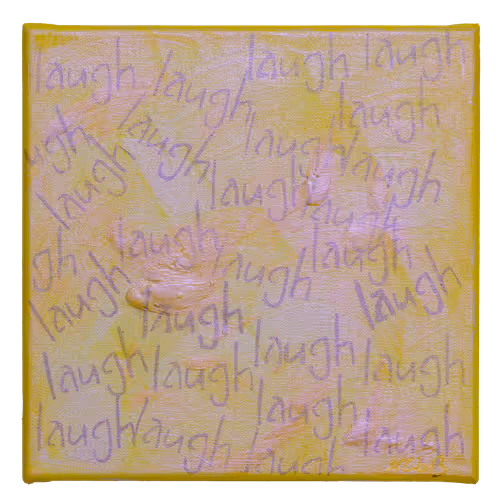 laugh laugh laugh laugh
laugh
ugh laugh laugh laugh
laugh laugh
laugh
gh laugh laugh
laugh laugh laugh
laugh
laugh laugh
laugh laugh laugh
laugh
laugh laugh laugh
laugh